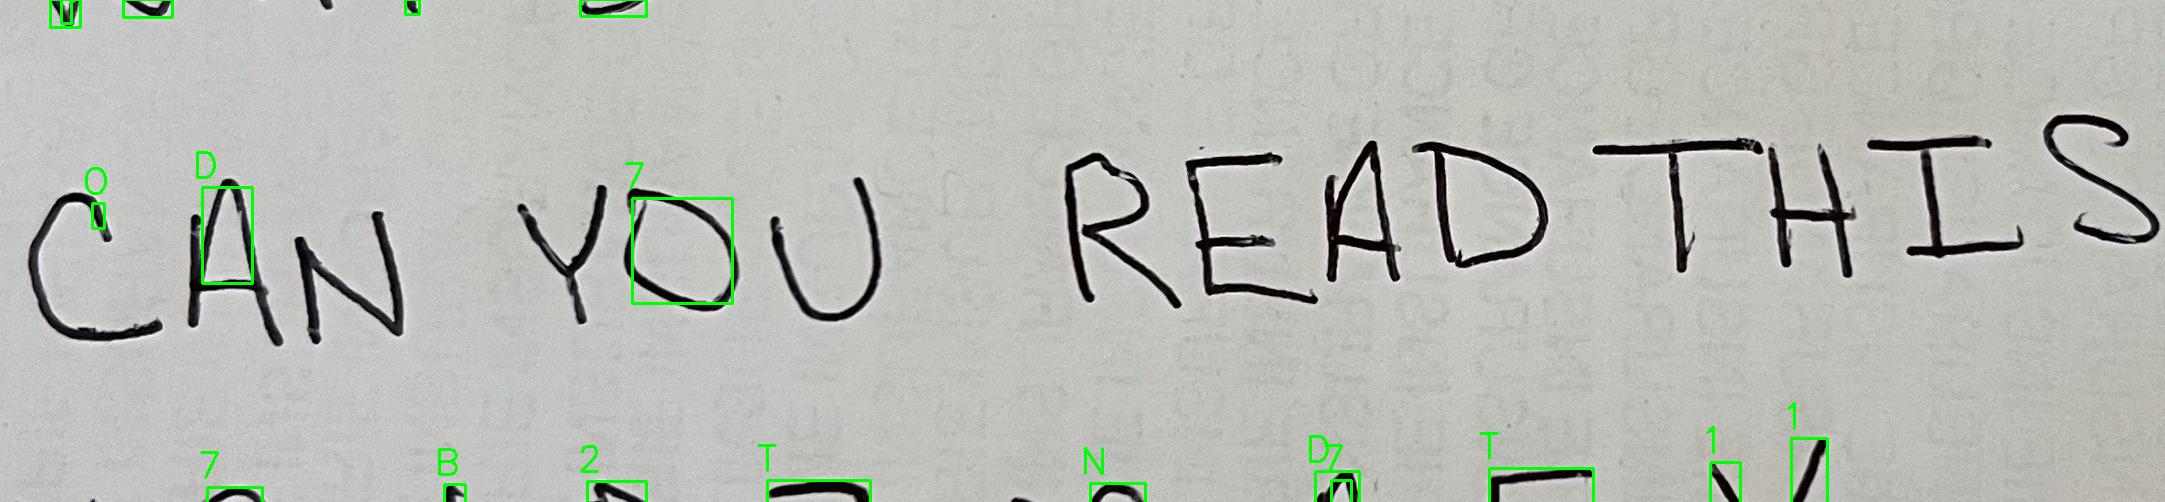 O D 7
CAN YOU READ THIS
7 B 2 T N D7 T 1 1